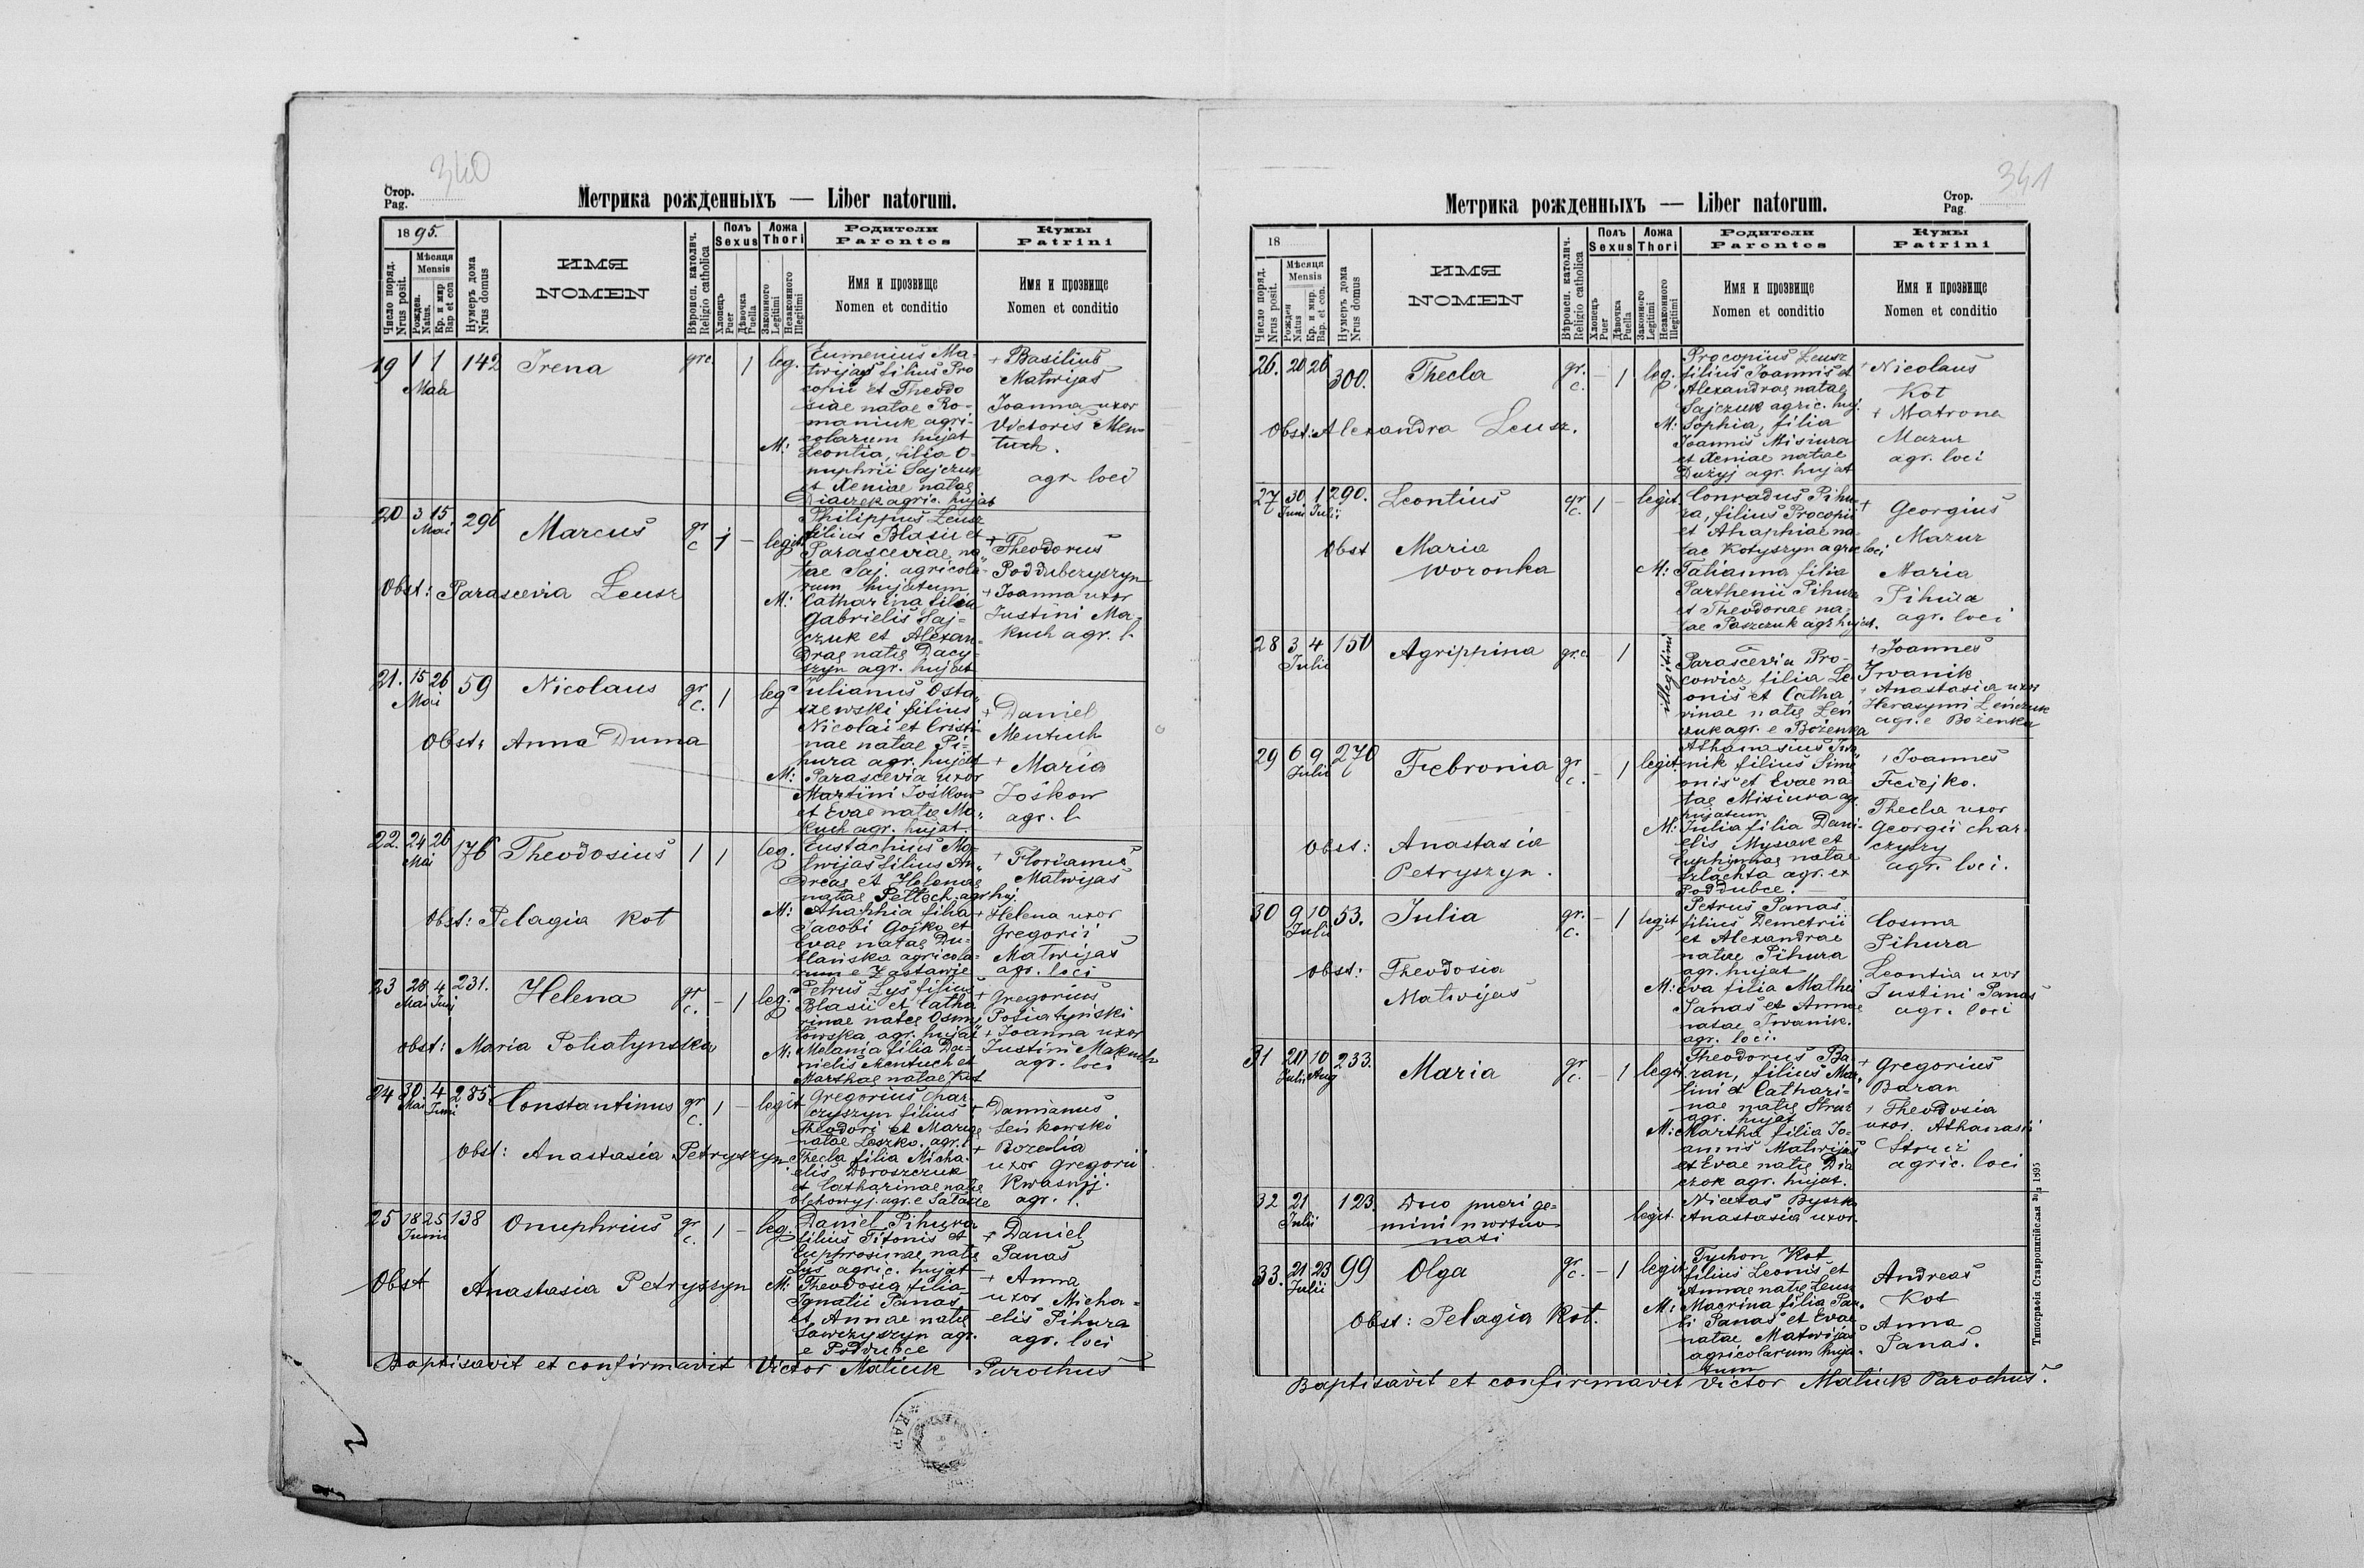 340
Стор.
Pag.
Метрика рожденныхъ — Liber natorum.
1895.
Число поряд.
Nrus posit.
Мѣсяця
Mensis
Рожден.
Natus.
Кр. и мир
Bap et con
Нумеръ дома
Nrus domus
ИМЯ
NOMEN
Вѣроисп. католич.
Religio catholica
Полъ
Sexus
Хлопецъ
Puer
Дѣвочка
Puella
Ложа
Thori
Законного
Legitimi
Незаконного
Illegitimi
Родители
Parentes
Имя и прозвище
Nomen et conditio
Кумы
Patrini
Имя и прозвище
Nomen et conditio
19 1 1 142 Irena gr.c. 1 leg.
Maia
Eumenius Ma-
twijaš filius Pro
copii et Theodo
siae natae Ro-
maniuk agri-
colarum hujat
M: Leontia, filia O-
nuphrii Sajczuk
et Xeniae natae
Diaczek agric. hujat
+ Basilius
Matwijas
Joanna uxor
Victoris Men-
tuch.
agr. loci
20 3 15 296 Marcus gr c 1 — legit.
Mai
Obst: Parascevia Leusz
Philippus Leusz
filius Blasii et
Parasceviae na-
tae Saj. agricola-
rum hujatum
M: Catharina filia
Gabrielis Saj-
czuk et Alexan-
drae natae Dacy-
szyn agr. hujat
+ Theodorus
Podduberyszyn
+ Joanna uxor
Justini Ma-
kuch agr. l.
21. 15 26 59 Nicolaus gr c. 1 leg
Mai
Obst: Anna Duma
Julianus Osta-
szewski filius
Nicolai et Cristi-
nae natae Pi-
hura agr. hujat
M: Parascevia uxor
Martini Joškow
et Evae natae Ma-
kuch agr. hujat.
+ Daniel
Mentuch
+ Maria
Joškow
agr. l
22. 24 26 176 Theodosius 1 1 leg.
Mai
Obst: Pelagia Kot
Eustachius Ma-
twijas filius An-
dreae et Helenae
natae Peltech agr huj.
M: Ahaphia filia
Jacobi Gojko et
Evae natae Du-
blańska agricola-
rum e Zastawie
+ Florianus
Matwijas
+ Helena uxor
Gregorii
Matwijas
agr. loci
23 28 4 231. Helena gr c. — 1 leg.
Mai Juni
obst: Maria Potiatynska
Petrus Lys filius
Blasii et Catha
rinae natae Osmi-
lowska agr. hujat
M: Melania filia Da-
nielis Mentuch et
Marthae natae Kot
+ Gregorius
Potiatynski
+ Joanna uxor
Justini Makuch
agr. loci
24 30 4 285. Constantinus gr c. 1 — legit
Mai Juni
Obst: Anastasia Petryszyn
Gregorius Char-
czyszyn filius
Theodori et Mariae
natae Leszko. agr. l.
Thecla filia Micha-
elis Doroszczuk
et Catharinae natae
+ Damianus
Leńkowski
+ Rozalia
uxor Gregorii
Kwasnij.
agr. l.
25 18 25 138 Onuphrius gr c. 1 — leg.
Junii
Obst Anastasia Petryszyn
Daniel Pihura
filius Titonis et
Euphrosinae natae
Lys agric. hujat
M: Theodosia filia
Ignatii Panas
et Annae natae
Lawczyszyn agr.
e Poddubce
+ Daniel
Panas
+ Anna
uxor Micha-
elis Pihura
agr. loci
Baptisavit et confirmavit Victor Matiuk Parochus
341
Стор.
Pag
Метрика рожденныхъ — Liber natorum.
18
Число поряд.
Nrus posit.
Мѣсяця
Mensis
Рожден
Natus
Кр. и мир.
Bap. et con.
Нумеръ дома
Nrus domus
ИМЯ
NOMEN
Вѣроисп. католич.
Religio catholica
Полъ
Sexus
Хлопецъ
Puer
Дѣвочка
Puella
Ложа
Thori
Законного
Legitimi
Незаконного
Illegitimi
Родители
Parentes
Имя и прозвище
Nomen et conditio
Кумы
Patrini
Имя и прозвище
Nomen et conditio
26. 20 26 300. Thecla gr. c. — 1 leg.
Obst: Alexandra Leusz.
Procopius Leusz
filius Joannis et
Alexandrae natae
Sajczuk agric. huj.
M: Sophia, filia
Joannis Misiura
et Xeniae natae
Dużyj agr. hujat
+ Nicolaus
Kot
+ Matrona
Mazur
agr. loci
27 30 1 290. Leontius gr c. 1 — legit
Juni Julii
Obst Maria
Woronka
Conradus Pihu-
ra, filius Procopii
et Ahaphiae na-
tae Kotyszyn agr. loci
M: Tatianna filia
Parthenii Pihura
et Theodorae na-
tae Paszczuk agr hujat.
+ Georgius
Mazur
Maria
Pihura
agr. loci
28 3 4 150 Agrippina gr.c. — 1 illegitimi
Julii
Parascevia Pro-
cowicz filia Le-
onis et Catha
rinae natae Leń
czuk agr. e Bożenka
+ Joannes
Iwanik
+ Anastasia uxor
Herasymi Leńczuk
agr. e Bożenka
29 6 9 270 Febronia gr c. — 1 legit.
Julii
obst: Anastasia
Petryszyn.
Athanasius Iwa
nik filius Sime
onis et Evae na
tae Misiura agr.
hujatum
M: Julia filia Dani-
elis Mysak et
Euphimiae natae
Szlachta agr. ex
Poddubce. —
+ Joannes
Feciejko.
Thecla uxor
Georgii Char-
czyszy
agr. loci.
30 9 10 53. Julia gr. c. — 1 legit
Julii
obst: Theodosia
Matwijas
Petrus Panas
filius Demetrii
et Alexandrae
natae Pihura
agr. hujat
M: Eva filia Mathei
Panas et Annae
natae Iwanik.
agr. loci.
Cosma
Pihura
Leontia uxor
Justini Panas
agr. loci
31 20 10 233. Maria gr c. — 1 legit
Julii Aug
Theodorus Ba-
ran, filius Mar-
tini et Cathari-
nae natae Struz
agr. hujat
M: Martha filia Jo-
annis Matwijas
et Evae natae Dia
czok agr. hujat.
+ Gregorius
Baran
+ Theodosia
uxor Athanasii
agric. loci
32 21 123. Duo pueri ge-
Julii mini mortuo
nati
legit.
Nicetas Byszko
Anastasia uxor
33. 21 23 99 Olga gr c. — 1 legit
Julii
Obst: Pelagia Kot.
Tychon Kot
filius Leonis et
Annae natae Leusz
M: Macrina filia Pau-
li Panas et Evae
natae Matwijas
agricolarum huja-
tum
Andreas
Kot
Anna
Panas.
Baptisavit et confirmavit Victor Matiuk Parochus.